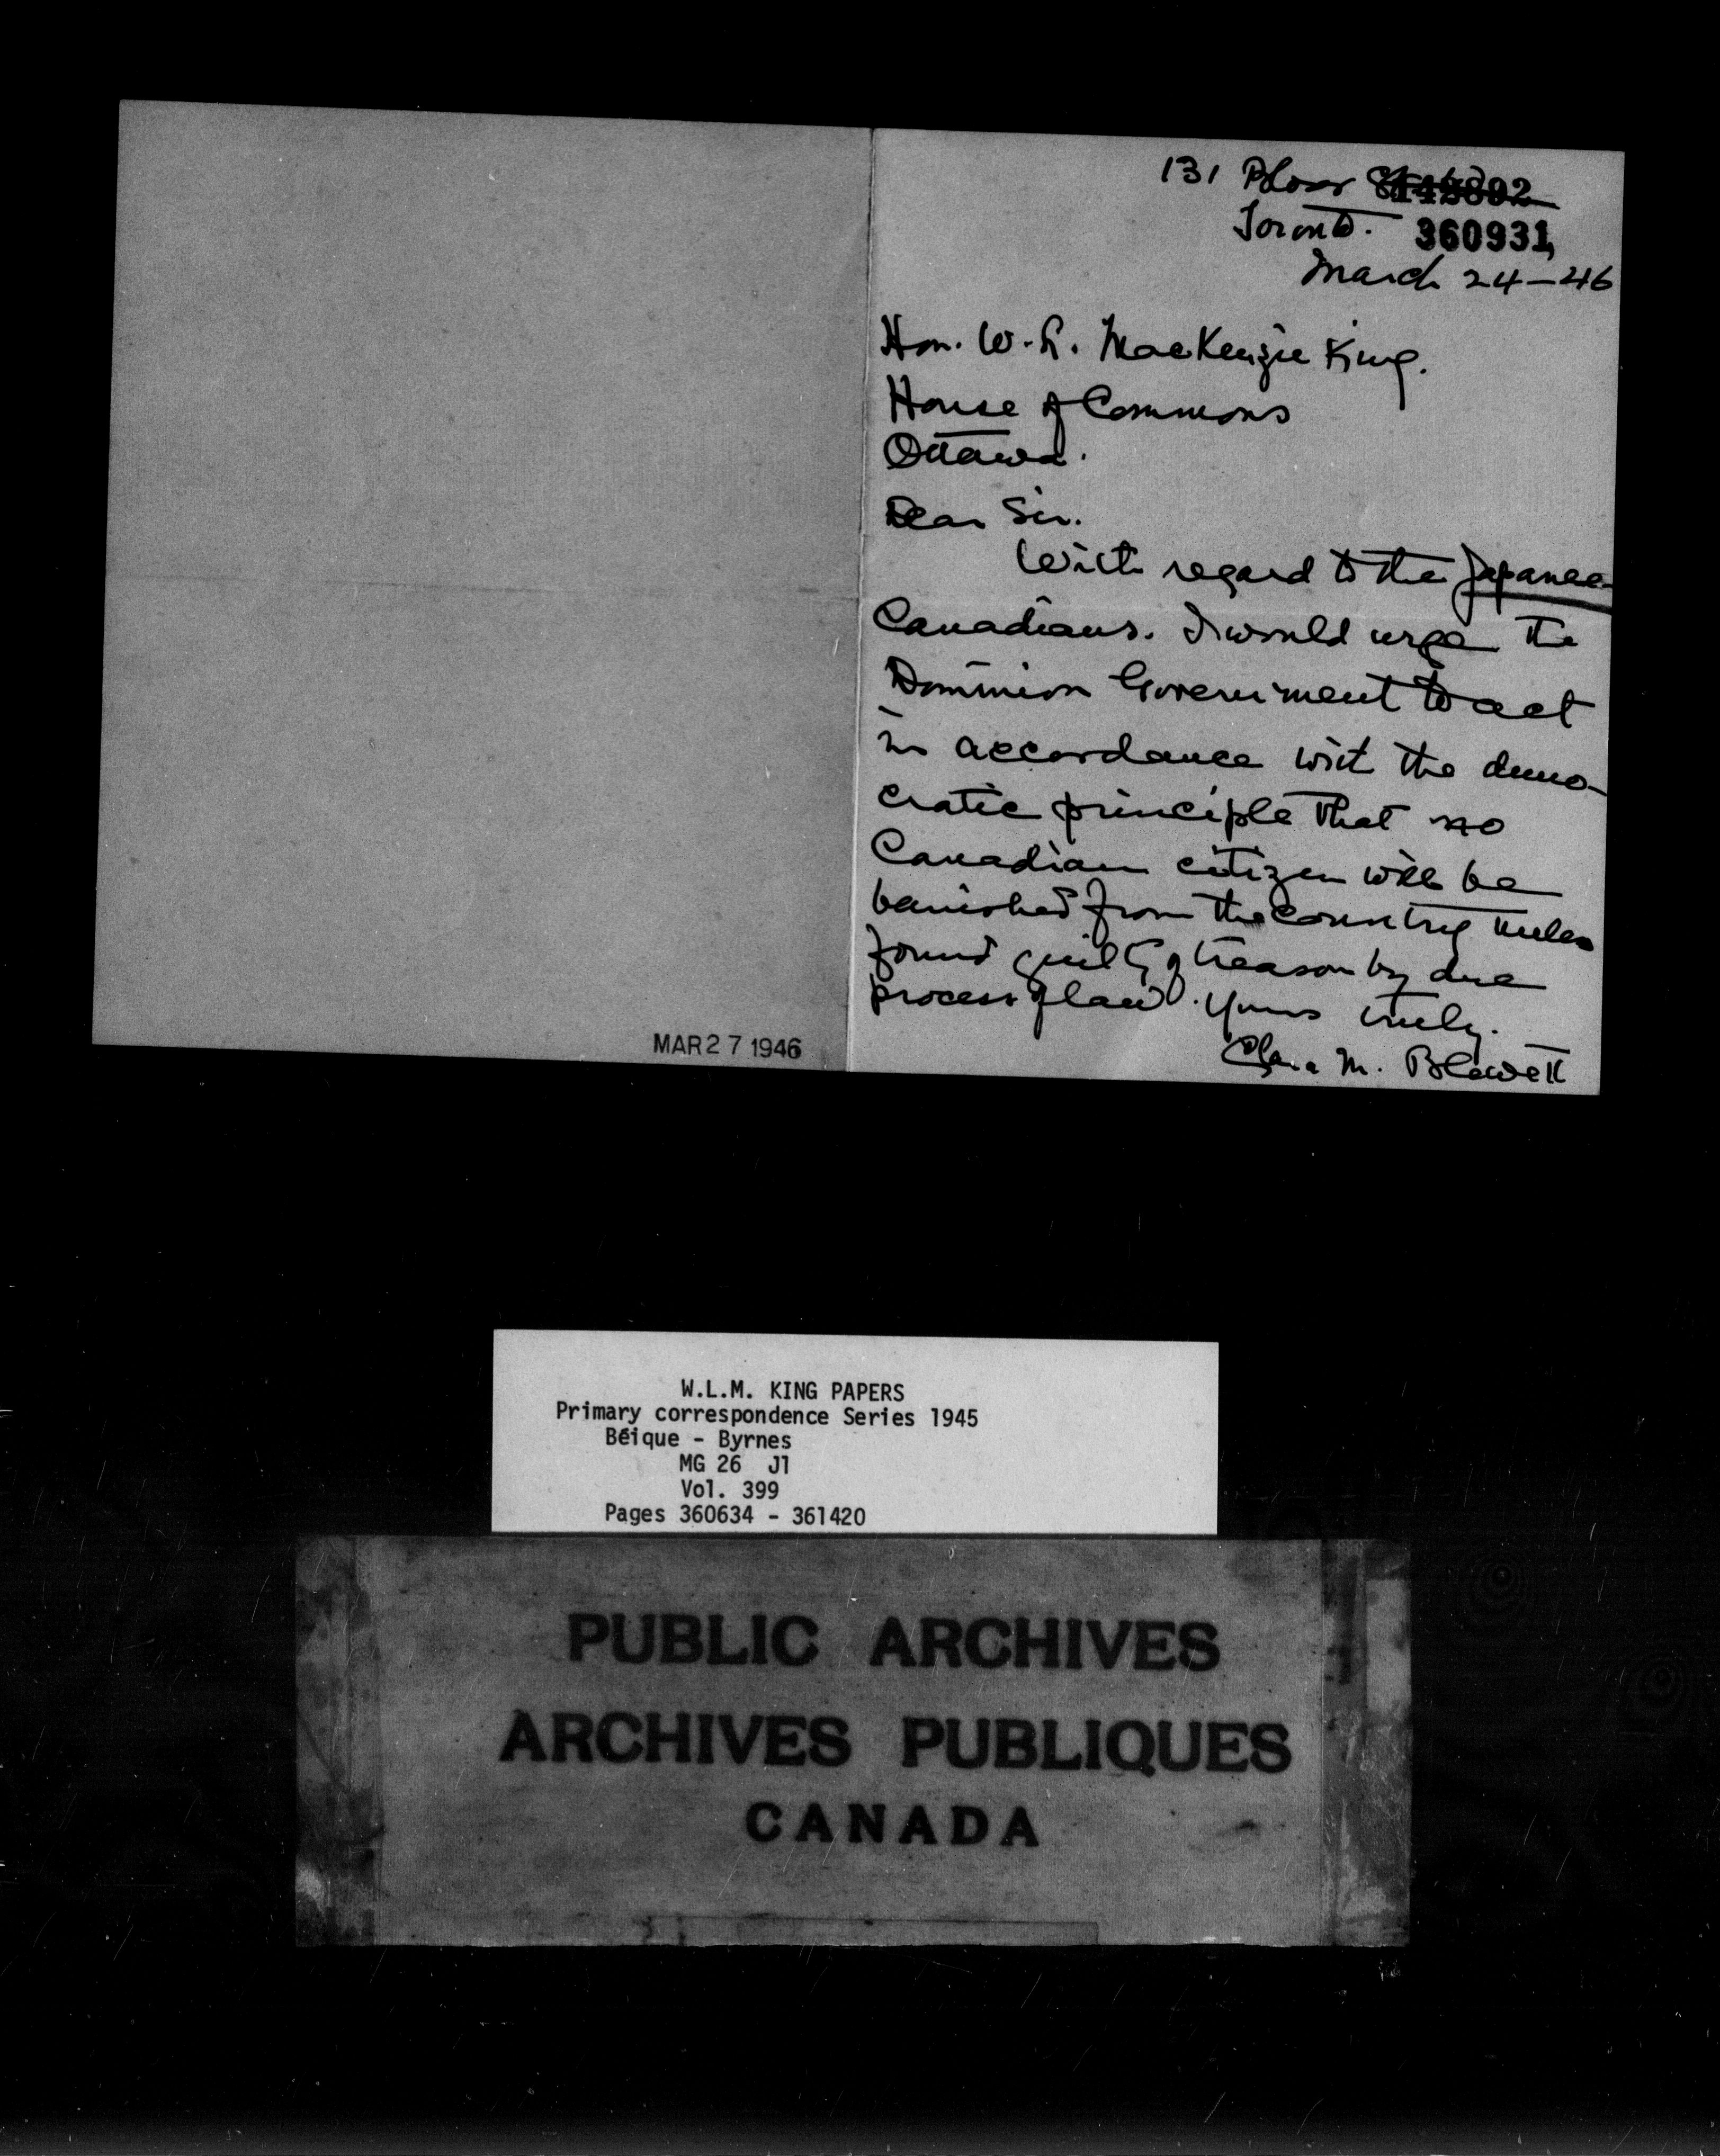 131 Bloor
149892
Toronto. 360931
March 24-46
Hon. W. L. MacKenzie King.
House of Commons
Ottawa.
Dear Sir.
With regard to the Japanese
Canadians. I would urge the
Dominion Government to act
in accordance wit the demo-
cratic principle that no
Canadian citizen will be
banished from the country unless
found guilty of treason by due
process of law. Yours truly.
Clara M. Blewett
MAR 27 1946
W.L.M. KING PAPERS
Primary correspondence Series 1945
Béique - Byrnes
MG 26 J1
Vol. 399
Pages 360634 - 361420
PUBLIC ARCHIVES
ARCHIVES PUBLIQUES
CANADA